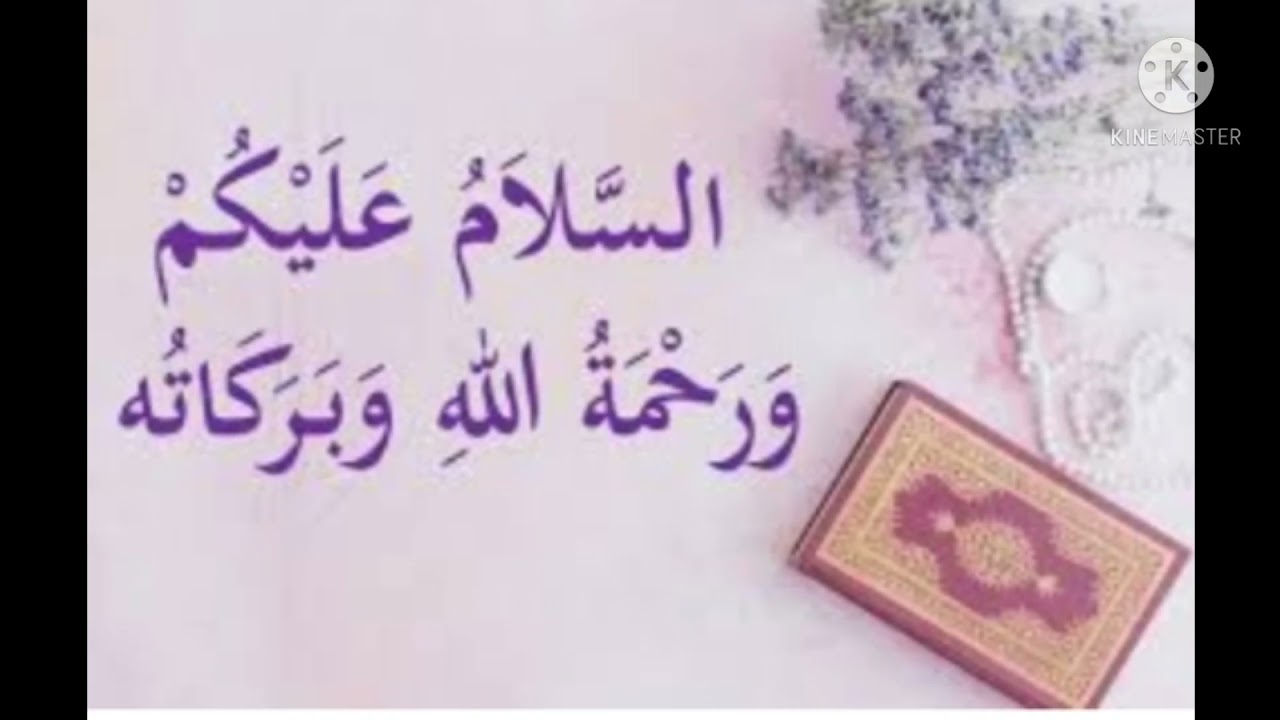 السَّلاَمُ عَلَيْكُمْ
وَرَحْمَةُ اللهِ وَبَرَكَاتُه
K
KINEMASTER